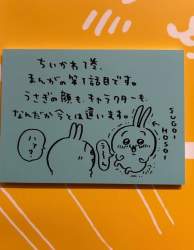 ちいかわ1巻、
まんがの第1話目です。
うさぎの顔も、キャラクターも、
なんだか今とは違います。
ハァ?
うーん
SUGOI
HOSOI